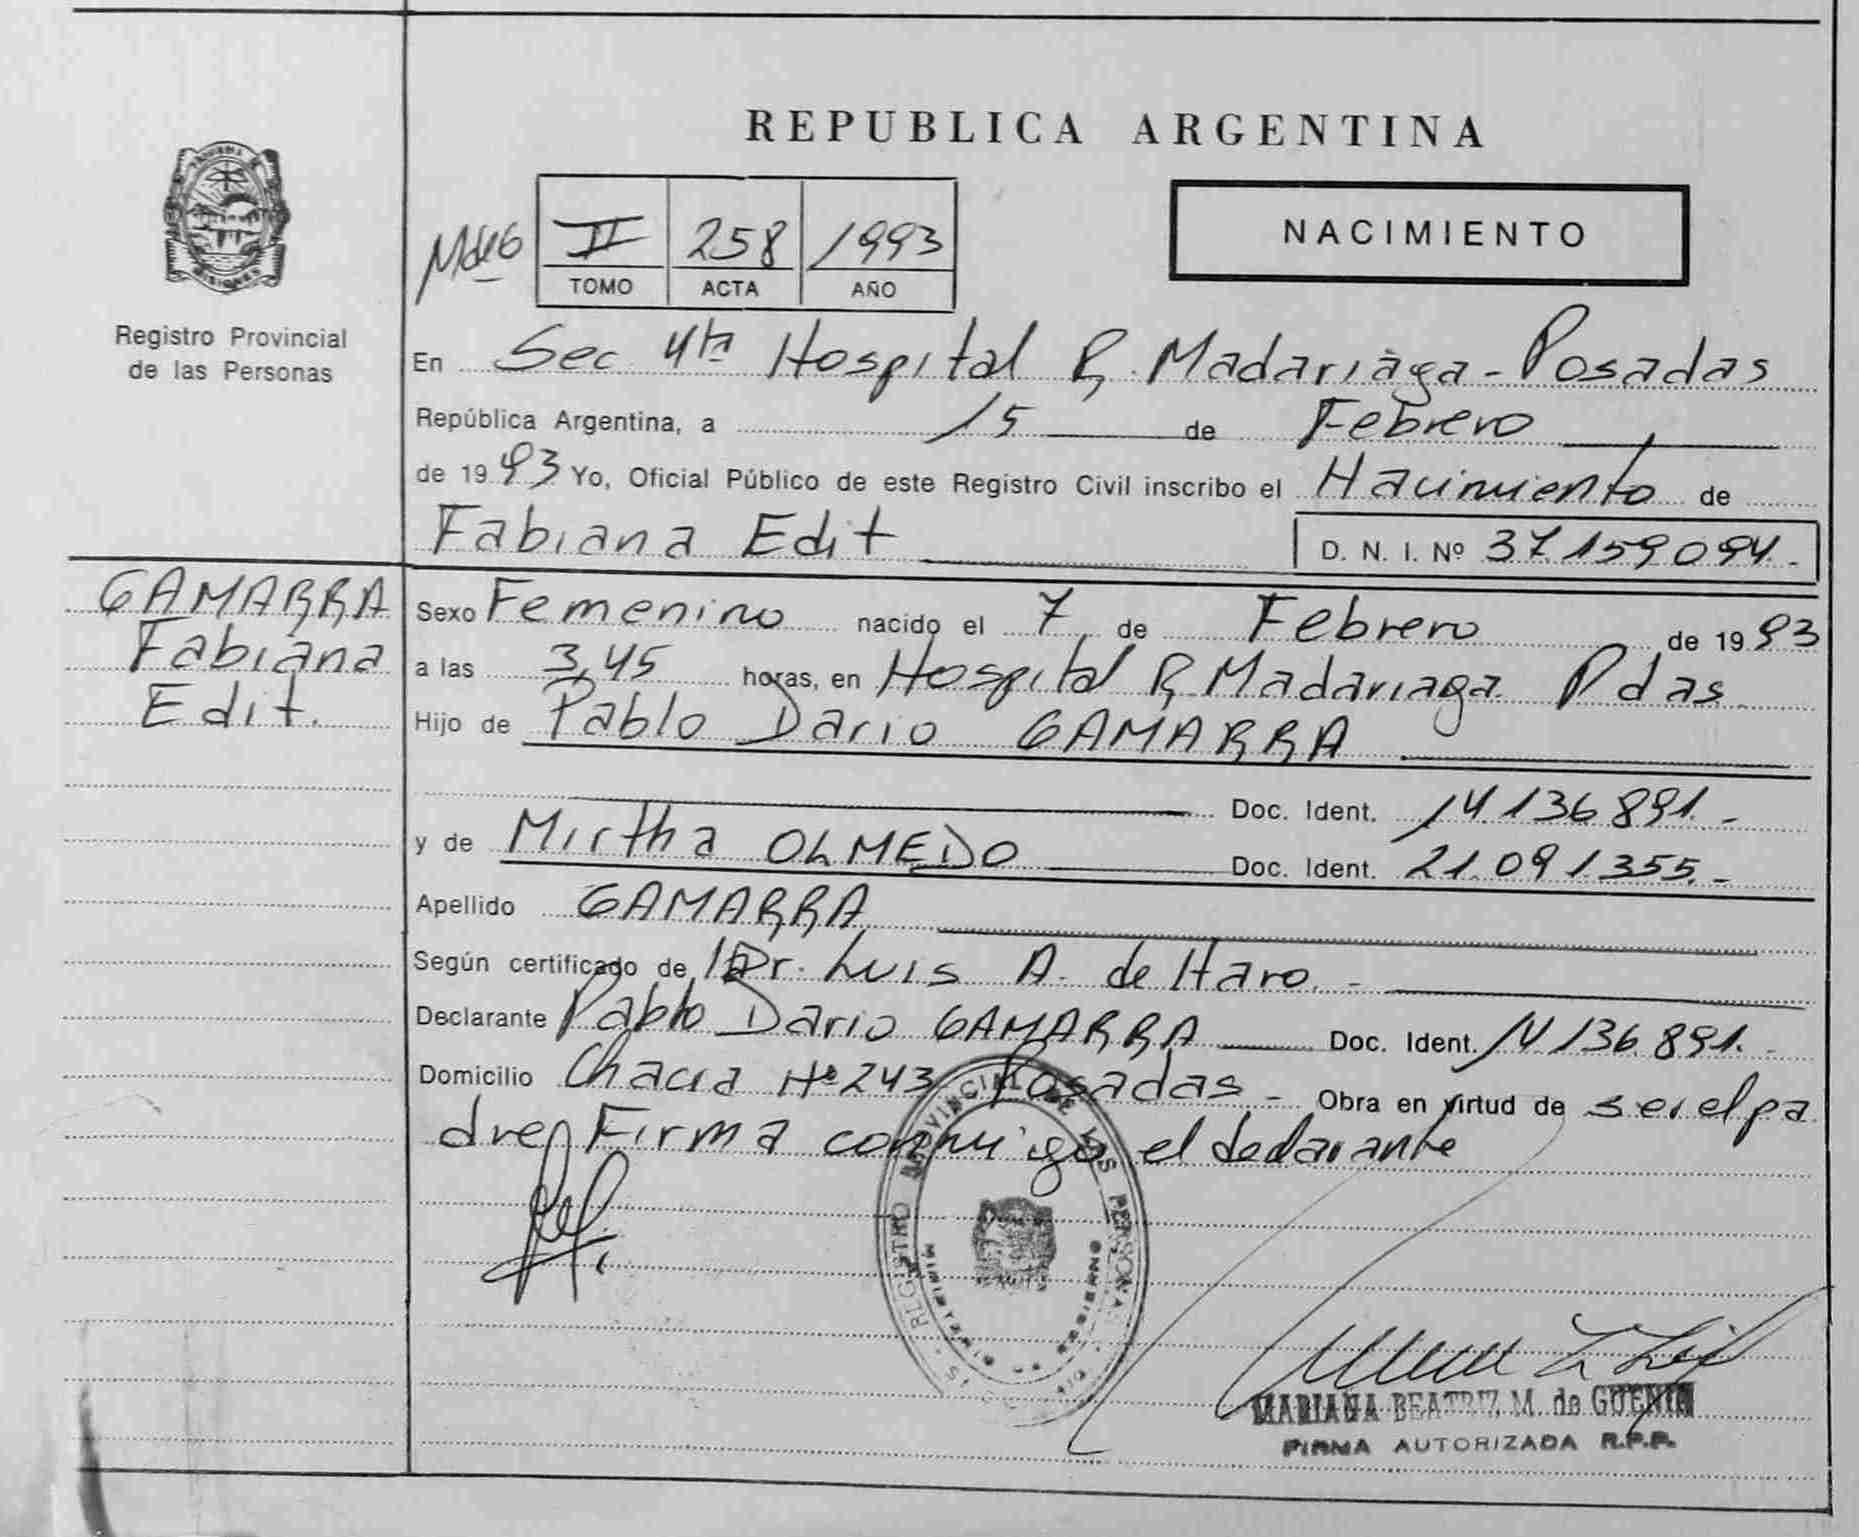 REPUBLICA ARGENTINA
NACIMIENTO
II 258 1993
TOMO ACTA AÑO
Registro Provincial
de las Personas
En Sec 4ta Hospital R. Madariaga - Posadas
República Argentina, a 15 de Febrero
de 1993 Yo, Oficial Público de este Registro Civil inscribo el Nacimiento de
Fabiana Edit D. N. I. Nº 37.159.094.-
GAMARRA
Fabiana
Edit.
Sexo Femenino nacido el 7 de Febrero de 1993
a las 3,45 horas, en Hospital R. Madariaga Pdas
Hijo de Pablo Dario GAMARRA
Doc. Ident. 14.136.891.-
y de Mirtha OLMEDO Doc. Ident. 21.091.355.-
Apellido GAMARRA
Según certificado de Dr. Luis A. de Haro.-
Declarante Pablo Dario GAMARRA Doc. Ident. 14.136.891.-
Domicilio Chacra Nº 243 Posadas - Obra en virtud de ser el pa
dre Firma conmigo el declarante
REGISTRO PROVINCIAL DE LAS PERSONAS
MINISTERIO DE GOBIERNO
MARIANA BEATRIZ M. de GUENIN
FIRMA AUTORIZADA R.P.P.